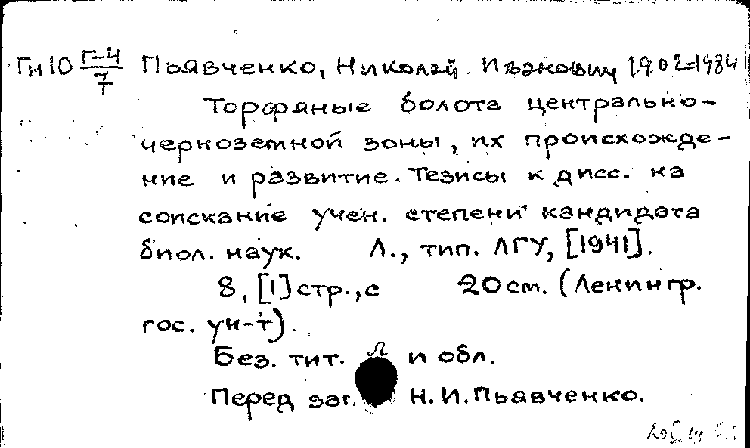 Гн10 Г-4/7т Пьявченко, Николай Иванович 1902-1984
Торфяные болота центрально-
черноземной зоны, их происхожде-
ние и развитие. Тезисы к дисс. на
соискание учен. степени кандидата
биол. наук. Л., тип. ЛГУ, [1941].
8, [1] стр., с 20 см. (Ленингр.
гос. ун-т).
Без. тит. л и обл.
Перед заг. Н. И. Пьявченко.